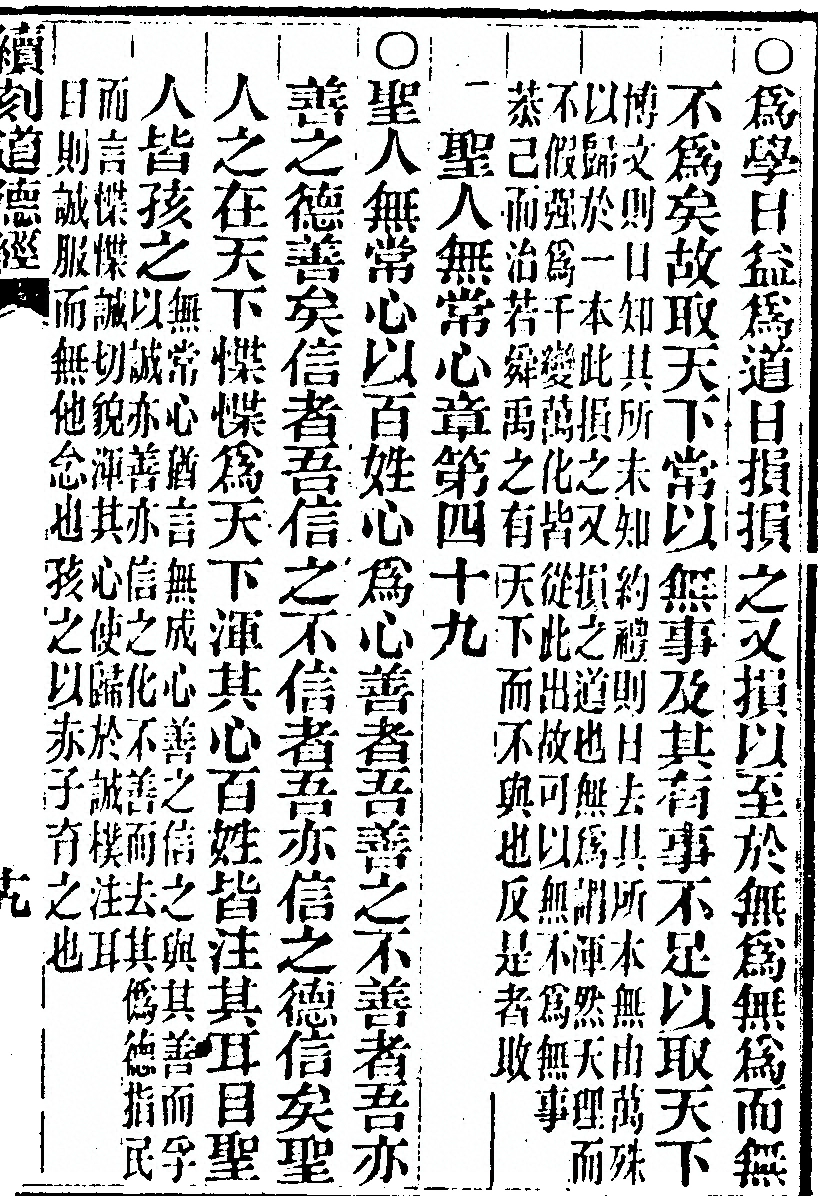 ○爲學日益爲道日損損之又損以至於無爲無爲而無
不爲矣故取天下常以無事及其有事不足以取天下
博文則日知其所未知約禮則日去其所本無由萬殊
以歸於一本此損之又損之道也無爲謂渾然天理而
不假强爲千變萬化皆從此出故可以無不爲無事
恭己而治若舜禹之有天下而不與也反是者敗
聖人無常心章第四十九
○聖人無常心以百姓心爲心善者吾善之不善者吾亦
善之德善矣信者吾信之不信者吾亦信之德信矣聖
人之在天下惵惵爲天下渾其心百姓皆注其耳目聖
人皆孩之
無常心猶言無成心善之信之與其善而孚
以誠亦善亦信之化不善而去其僞德指民
而言惵惵誠切貌渾其心使歸於誠樸注耳
目則誠服而無他念也孩之以赤子育之也
續刻道德經